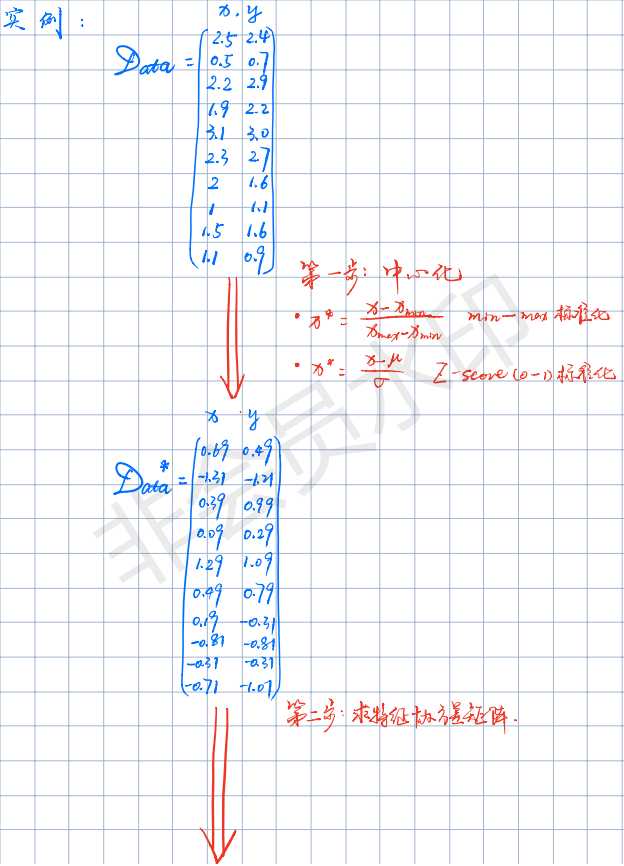 实例:
x. y
Data = 2.5 2.4
0.5 0.7
2.2 2.9
1.9 2.2
3.1 3.0
2.3 2.7
2 1.6
1 1.1
1.5 1.6
1.1 0.9
第一步: 中心化
• x* = (x - xmin) / (xmax - xmin) min-max 标准化
• x* = (x - μ) / σ Z-score (0-1) 标准化
x . y
Data* = 0.69 0.49
-1.31 -1.21
0.39 0.99
0.09 0.29
1.29 1.09
0.49 0.79
0.19 -0.31
-0.81 -0.81
-0.31 -0.31
-0.71 -1.01
第二步: 求特征协方差矩阵.
非会员水印